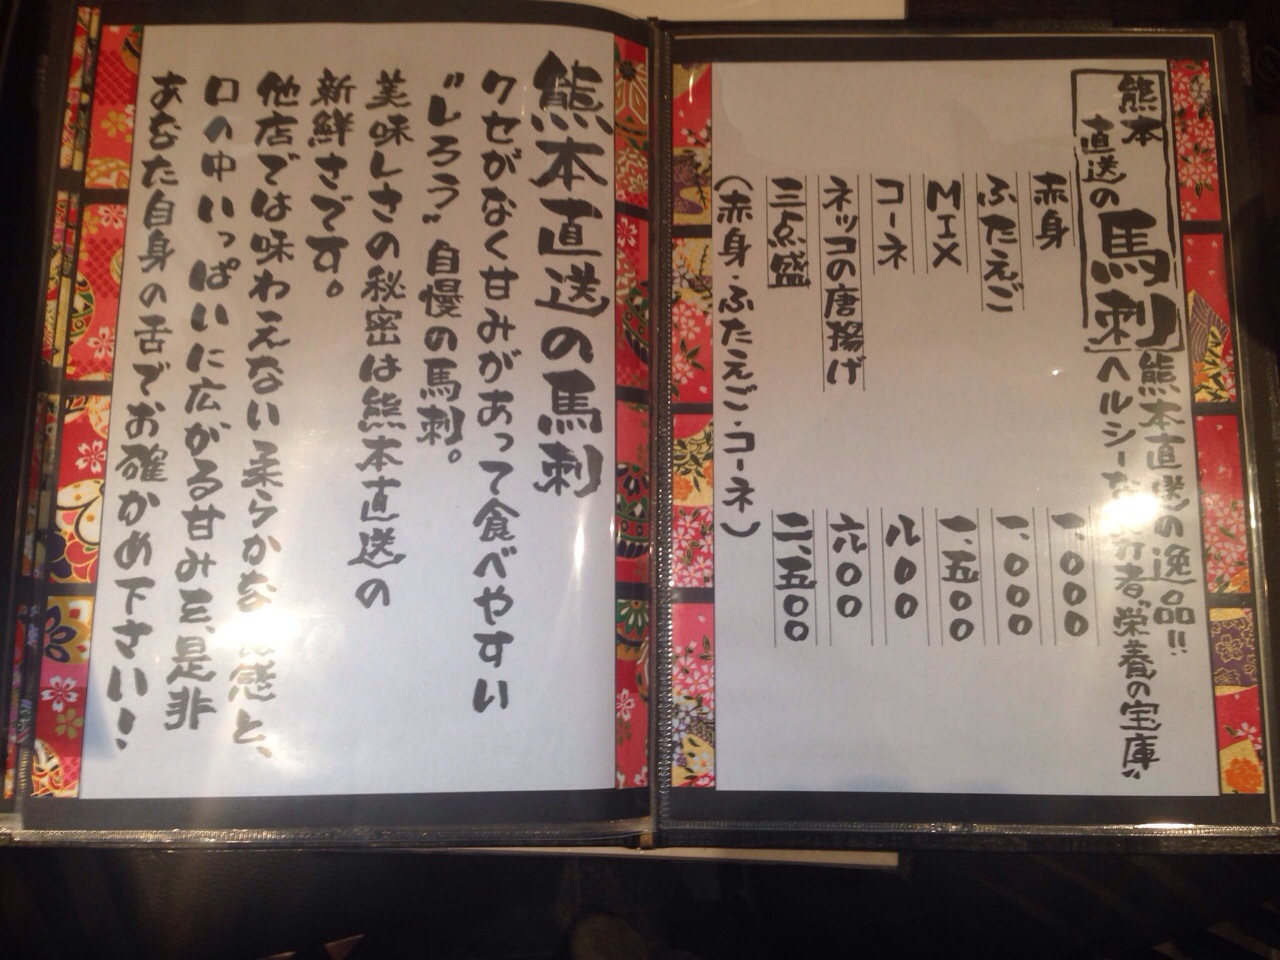 熊本
直送の馬刺
熊本直送の逸品!!
ヘルシーな
"栄養の宝庫"
赤身 一、000
ふたえご 一、000
MIX 一、五00
コーネ 八00
ネッコの唐揚げ 六00
三点盛 二、五00
(赤身・ふたえご・コーネ)
熊本直送の馬刺
クセがなく甘みがあって食べやすい
"しろう"自慢の馬刺。
美味しさの秘密は熊本直送の
新鮮さです。
他店では味わえない柔らかな 感と、
口の中いっぱいに広がる甘みを、是非
あなた自身の舌でお確かめ下さい!